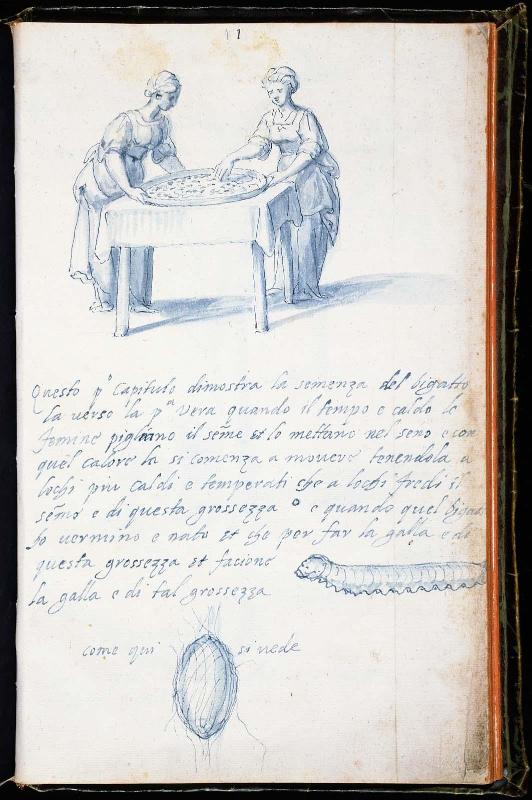 1
Questo p° Capitulo dimostra la semenza del bigatto
la verso la p^a Vera quando il tempo e caldo le
femine pigliano il seme et lo mettano nel seno e con
quel calore la si comenza a movere tenendola a
lochi piu caldi e temperati che a lochi fredi il
seme e di questa grossezza e quando quel
vermino e nato et che per far la galla e di
questa grossezza et facione
la galla e di tal grossezza
come qui si vede